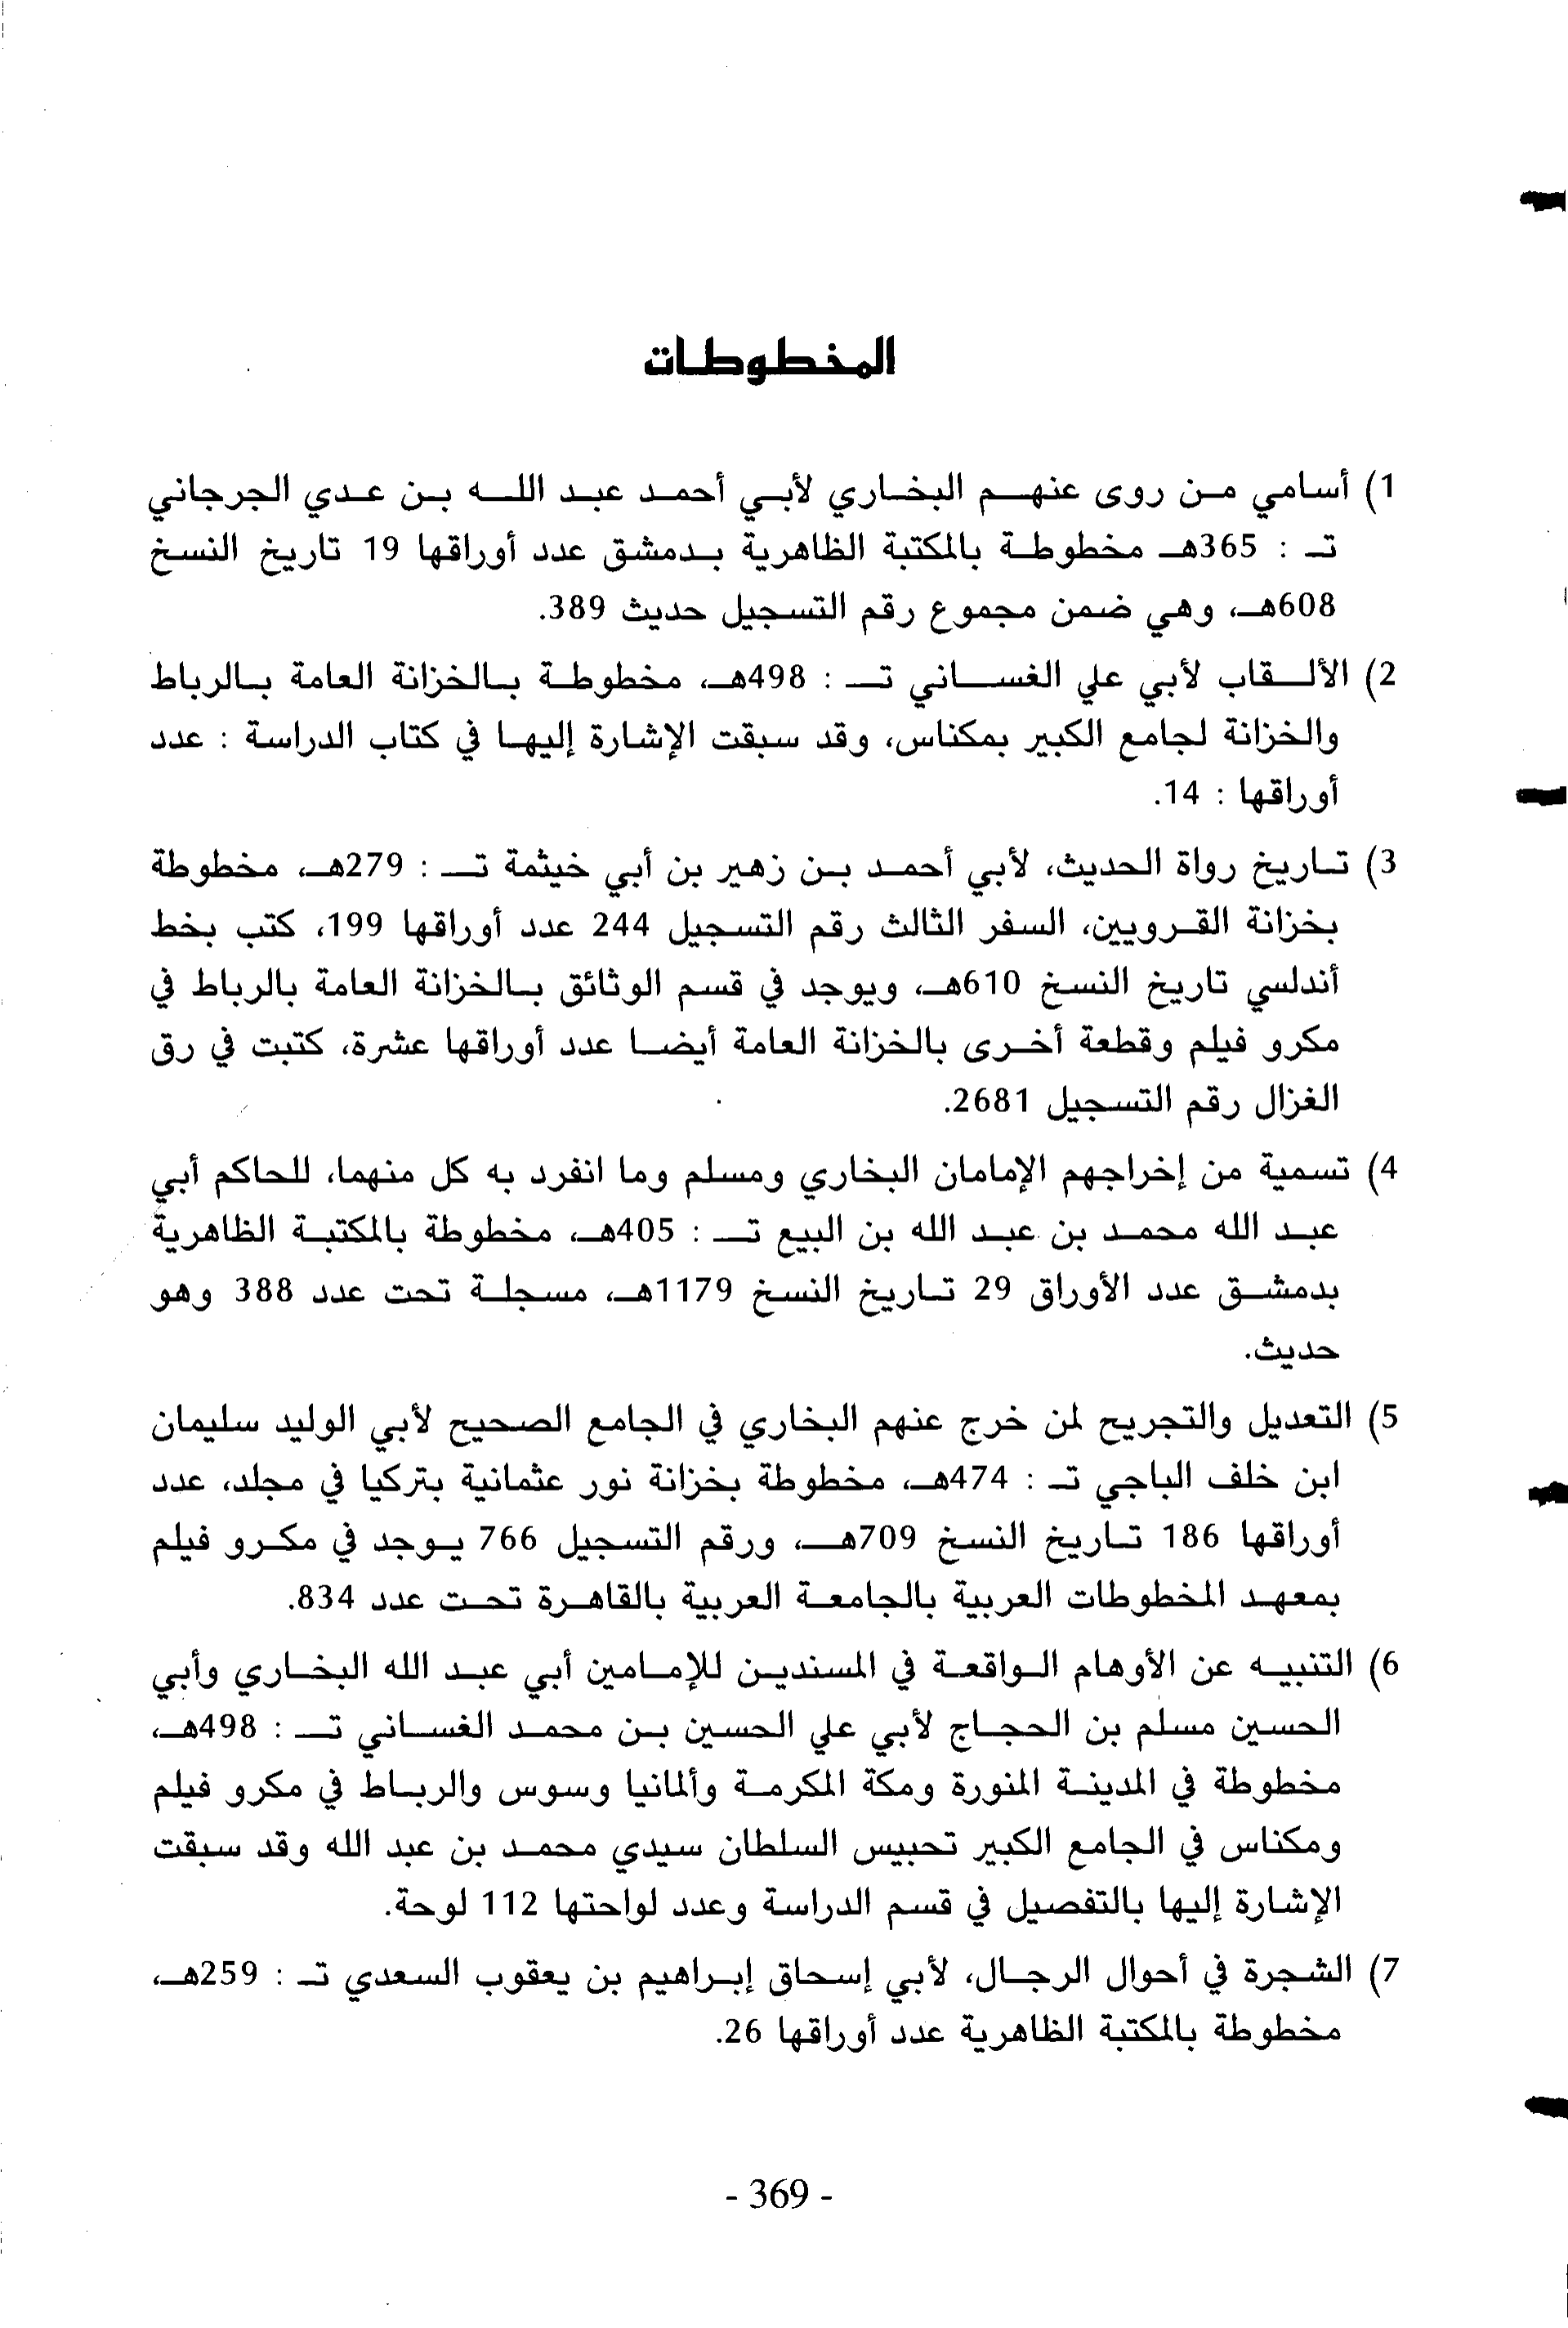 المخطوطات
1) أسامي من روى عنهم البخاري لأبي أحمد عبد الله بن عدي الجرجاني
تـ : 365هـ مخطوطة بالمكتبة الظاهرية بدمشق عدد أوراقها 19 تاريخ النسخ
608هـ، وهي ضمن مجموع رقم التسجيل حديث 389.
2) الألقاب لأبي علي الغساني تـ : 498هـ، مخطوطة بالخزانة العامة بالرباط
والخزانة لجامع الكبير بمكناس، وقد سبقت الإشارة إليها في كتاب الدراسة : عدد
أوراقها : 14.
3) تاريخ رواة الحديث، لأبي أحمد بن زهير بن أبي خيثمة تـ : 279هـ، مخطوطة
بخزانة القرويين، السفر الثالث رقم التسجيل 244 عدد أوراقها 199، كتب بخط
أندلسي تاريخ النسخ 610هـ، ويوجد في قسم الوثائق بالخزانة العامة بالرباط في
مكرو فيلم وقطعة أخرى بالخزانة العامة أيضا عدد أوراقها عشرة، كتبت في رق
الغزال رقم التسجيل 2681.
4) تسمية من إخراجهم الإمامان البخاري ومسلم وما انفرد به كل منهما، للحاكم أبي
عبد الله محمد بن عبد الله بن البيع تـ : 405هـ، مخطوطة بالمكتبة الظاهرية
بدمشق عدد الأوراق 29 تاريخ النسخ 1179هـ، مسجلة تحت عدد 388 وهو
حديث.
5) التعديل والتجريح لمن خرج عنهم البخاري في الجامع الصحيح لأبي الوليد سليمان
ابن خلف الباجي تـ : 474هـ، مخطوطة بخزانة نور عثمانية بتركيا في مجلد، عدد
أوراقها 186 تاريخ النسخ 709هـ، ورقم التسجيل 766 يوجد في مكرو فيلم
بمعهد المخطوطات العربية بالجامعة العربية بالقاهرة تحت عدد 834.
6) التنبيه عن الأوهام الواقعة في المسندين للإمامين أبي عبد الله البخاري وأبي
الحسين مسلم بن الحجاج لأبي علي الحسين بن محمد الغساني تـ : 498هـ،
مخطوطة في المدينة المنورة ومكة المكرمة وألمانيا وسوس والرباط في مكرو فيلم
ومكناس في الجامع الكبير تحبيس السلطان سيدي محمد بن عبد الله وقد سبقت
الإشارة إليها بالتفصيل في قسم الدراسة وعدد لواحتها 112 لوحة.
7) الشجرة في أحوال الرجال، لأبي إسحاق إبراهيم بن يعقوب السعدي تـ : 259هـ،
مخطوطة بالمكتبة الظاهرية عدد أوراقها 26.
- 369 -